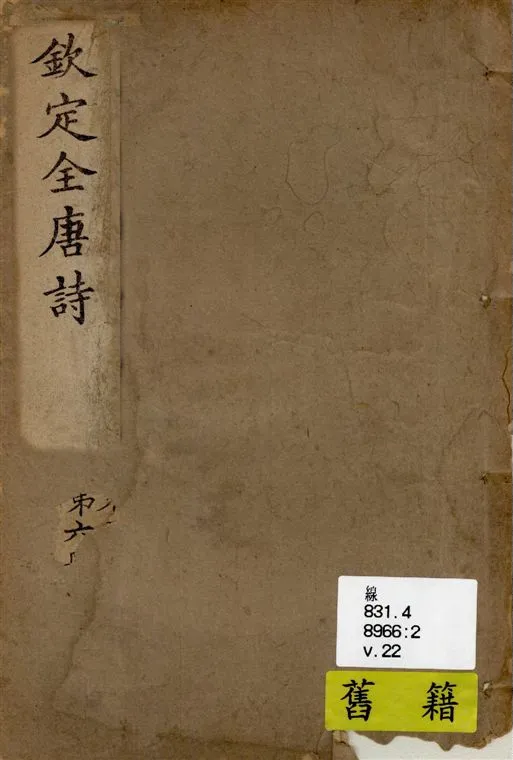 欽定全唐詩
第六
線
831.4
8966:2
v.22
舊籍